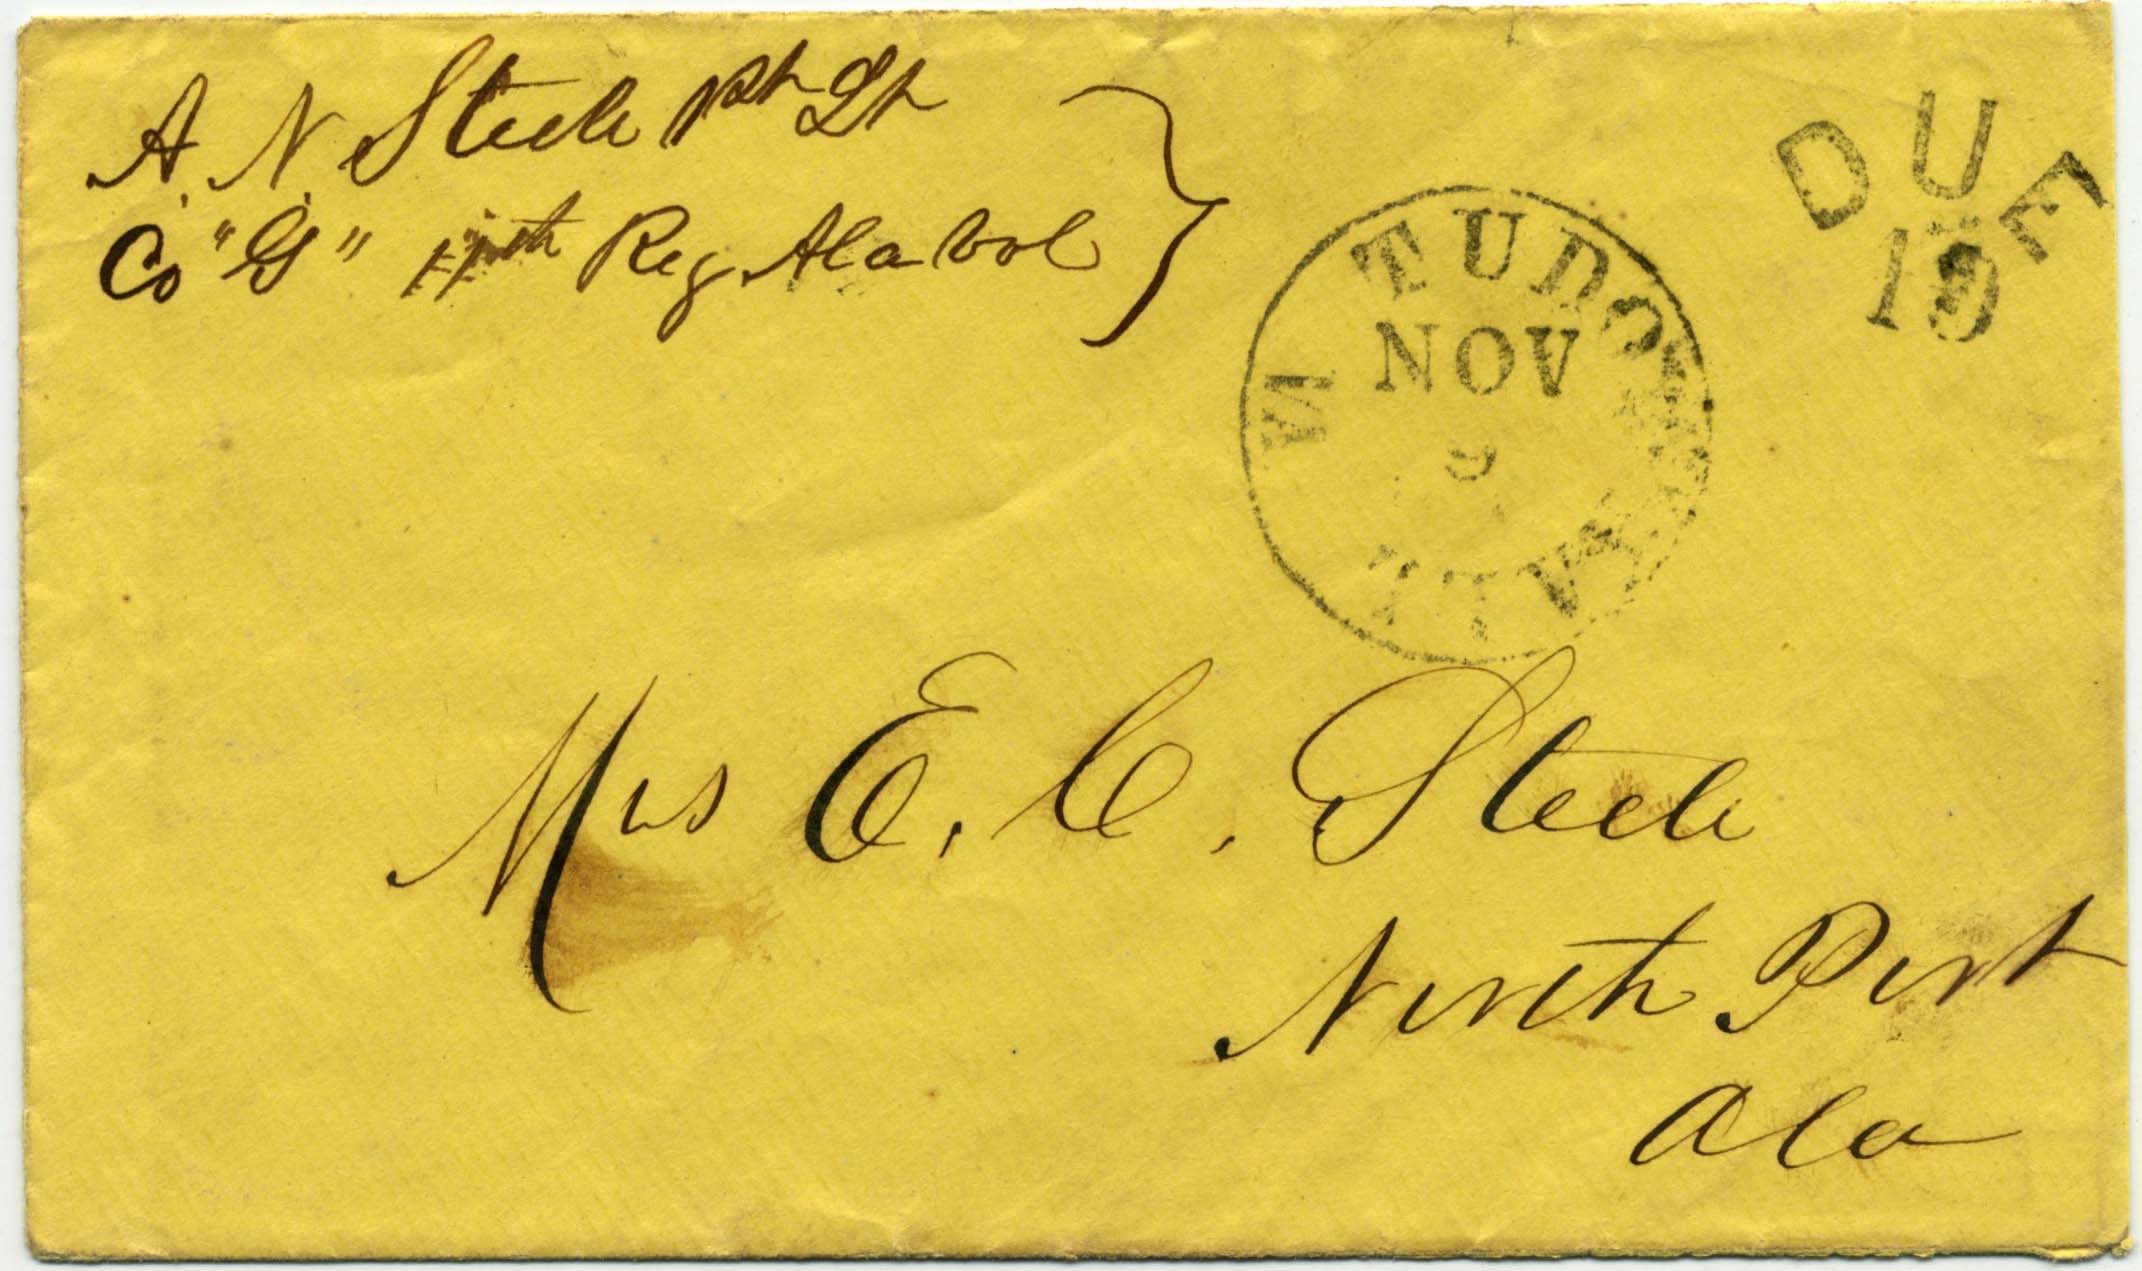 A. N. Steele 1st Lt
Co "G" 11th Reg Ala Vol
DUE
10
TUDOR HALL VA
NOV
9
Mrs E. C. Steele
North Port
Ala